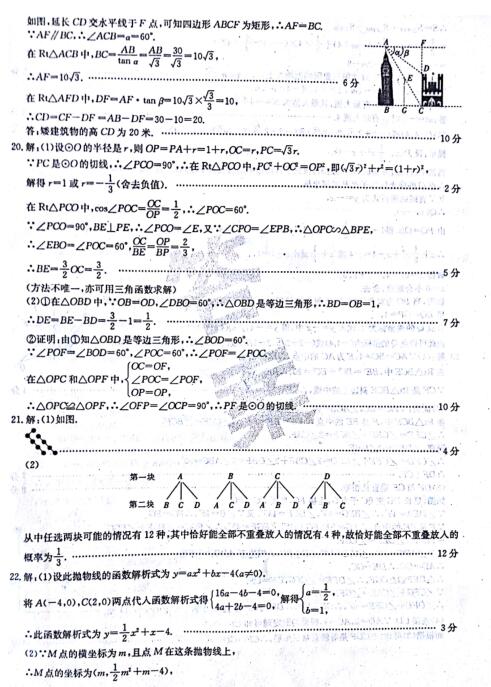 如图,延长 CD 交水平线于 F 点,可知四边形 ABCF 为矩形,∴AF=BC.
∵AF∥BC,∴∠ACB=α=60°.
在 Rt△ACB 中,BC=AB/tan α=AB/√3=30/√3=10√3,
∴AF=10√3. 6 分
A F
α β
D
E
B G C
在 Rt△AFD 中,DF=AF·tan β=10√3×√3/3=10,
∴CD=CF−DF=AB−DF=30−10=20.
答:矮建筑物的高 CD 为 20 米. 10 分
20.解:(1)设⊙O 的半径是 r,则 OP=PA+r=1+r,OC=r,PC=√3r.
∵PC 是⊙O 的切线,∴∠PCO=90°,∴在 Rt△PCO 中,PC²+OC²=OP²,即(√3r)²+r²=(1+r)²,
解得 r=1 或 r=−1/3(舍去负值). 2 分
在 Rt△PCO 中,cos∠POC=OC/OP=1/2,∴∠POC=60°.
∵∠PCO=90°,BE⊥PE,∴∠PCO=∠E,又∵∠CPO=∠EPB,∴△OPC∽△BPE,
∴∠EBO=∠POC=60°,OC/BE=OP/BP=2/3,
∴BE=3/2OC=3/2. 5 分
(方法不唯一,亦可用三角函数求解)
(2)①在△OBD 中,∵OB=OD,∠DBO=60°,∴△OBD 是等边三角形,∴BD=OB=1,
∴DE=BE−BD=3/2−1=1/2. 7 分
②证明:由①知△OBD 是等边三角形,∴∠BOD=60°.
∵∠POF=∠BOD=60°,∠POC=60°,∴∠POF=∠POC.
在△OPC 和△OPF 中,{OC=OF, ∠POC=∠POF, OP=OP,
∴△OPC≌△OPF,∴∠OFP=∠OCP=90°,∴PF 是⊙O 的切线. 10 分
21.解:(1)如图.
4 分
(2)
第一块 A B C D
第二块 B C D A C D A B D A B C
从中任选两块可能的情况有 12 种,其中恰好能全部不重叠放入的情况有 4 种,故恰好能全部不重叠放入的
概率为1/3. 12 分
22.解:(1)设此抛物线的函数解析式为 y=ax²+bx−4(a≠0).
将 A(−4,0),C(2,0)两点代入函数解析式得{16a−4b−4=0, 4a+2b−4=0, 解得{a=1/2, b=1,
∴此函数解析式为 y=1/2x²+x−4. 3 分
(2)∵M 点的横坐标为 m,且点 M 在这条抛物线上,
∴M 点的坐标为(m,1/2m²+m−4),